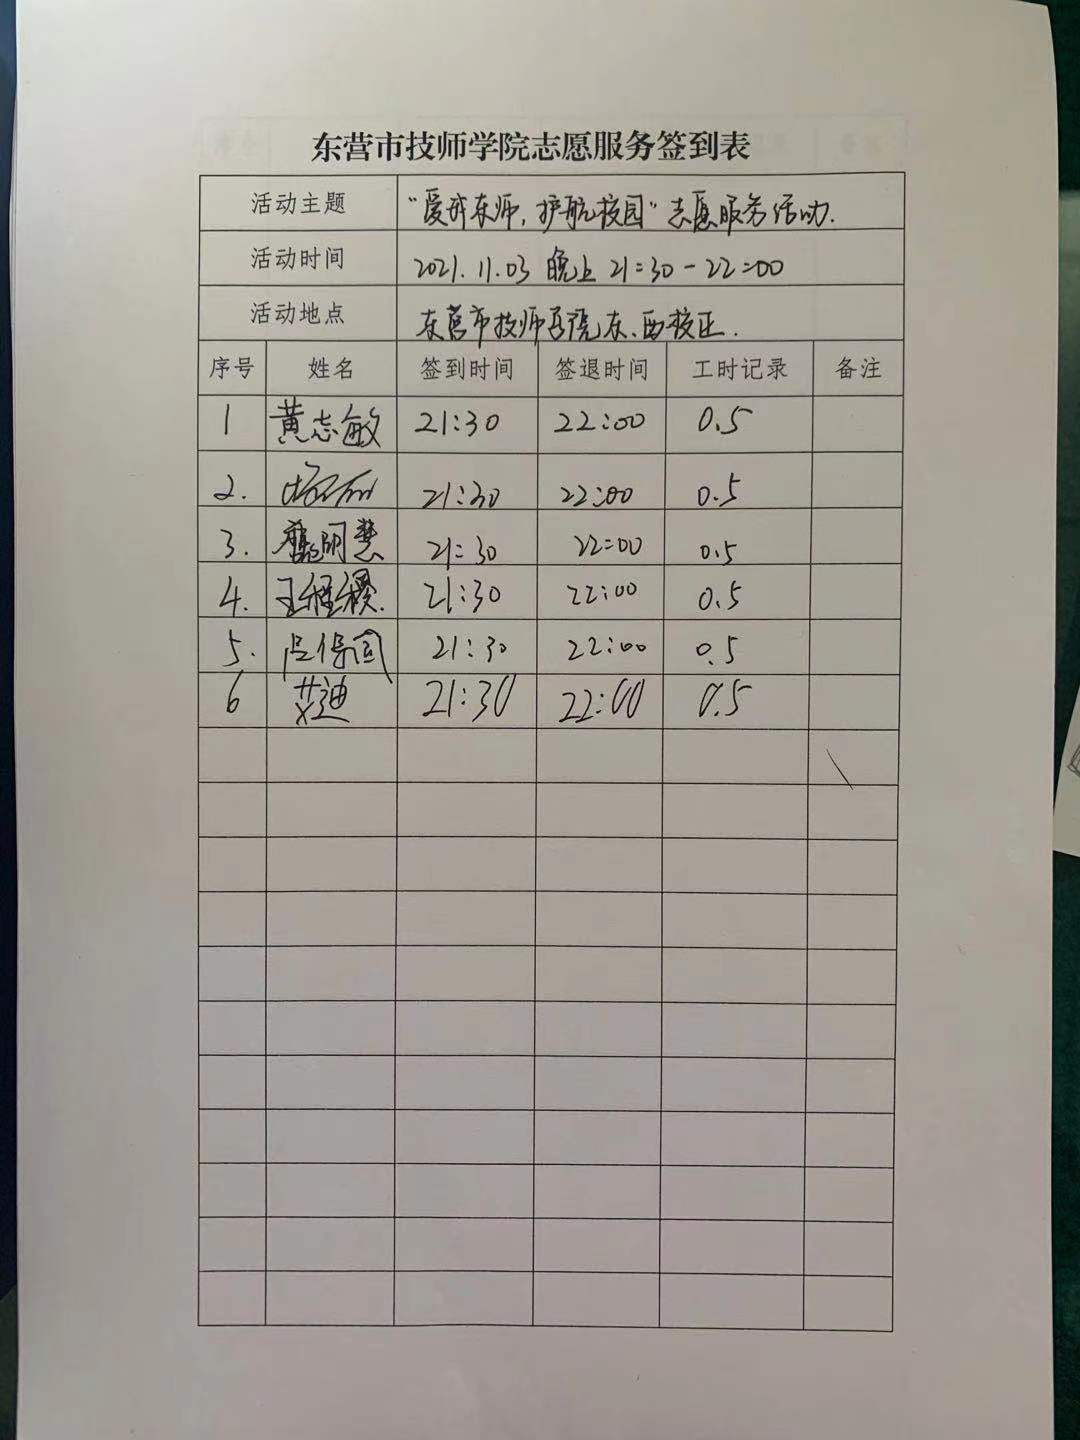 东营市技师学院志愿服务签到表
活动主题 “爱我东师,护航校园”志愿服务活动.
活动时间 2021.11.03 晚上 21:30-22:00
活动地点 东营市技师学院东、西校区.
序号 姓名 签到时间 签退时间 工时记录 备注
1 黄志敏 21:30 22:00 0.5
2. 21:30 22:00 0.5
3. 明慧 21:30 22:00 0.5
4. 王程稷. 21:30 22:00 0.5
5. 21:30 22:00 0.5
6 艾迪 21:30 22:00 0.5